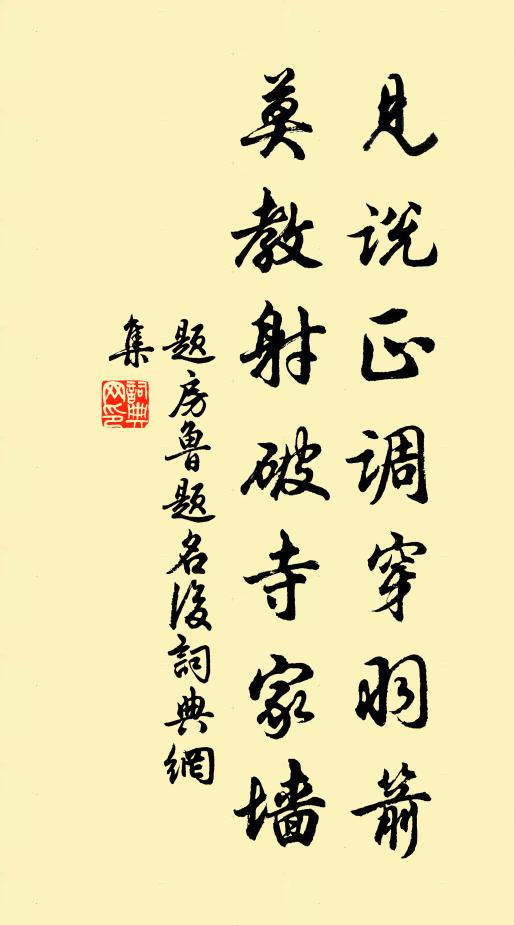 见说正调穿羽箭
莫教射破寺家墙
题房鲁题名後詞典網
集
詞典
网印